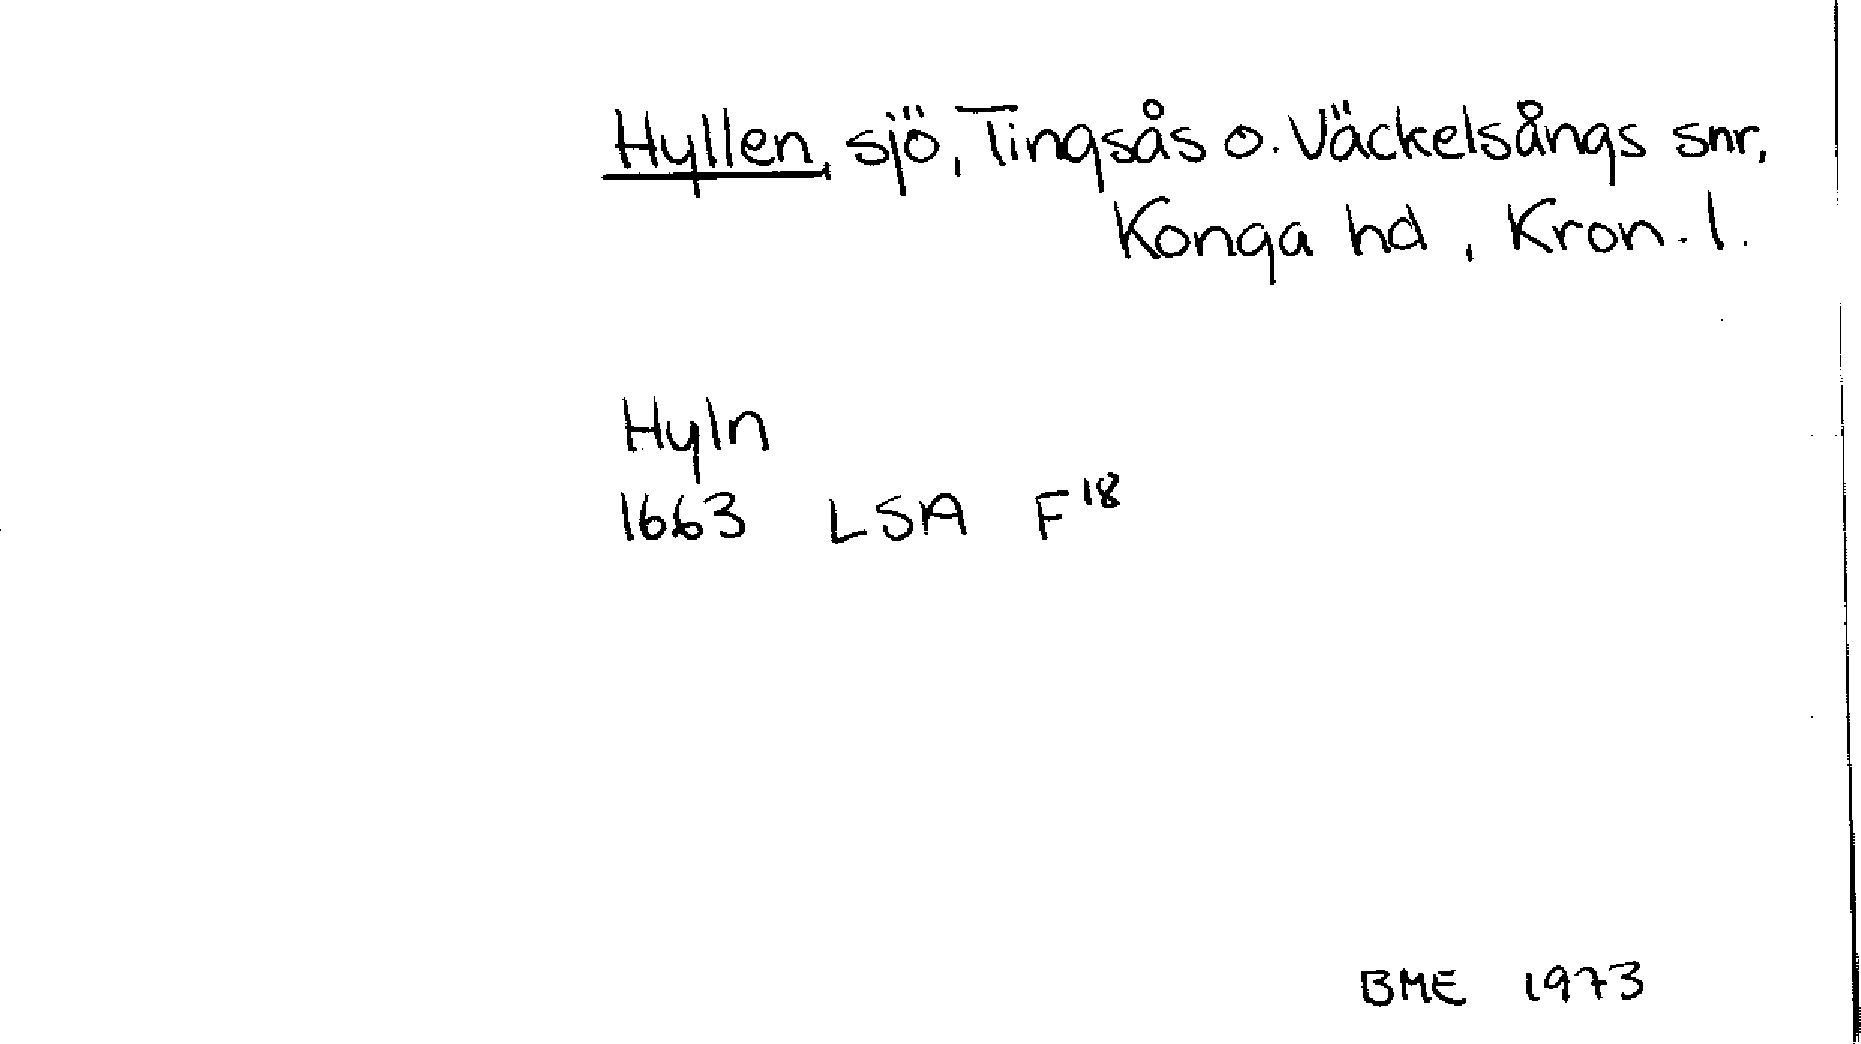 Hyllen, sjö, Tingsås o. Väckelsångs snr,
Konga hd, Kron. l.
Hyln
1663 LSA F18
BME 1973